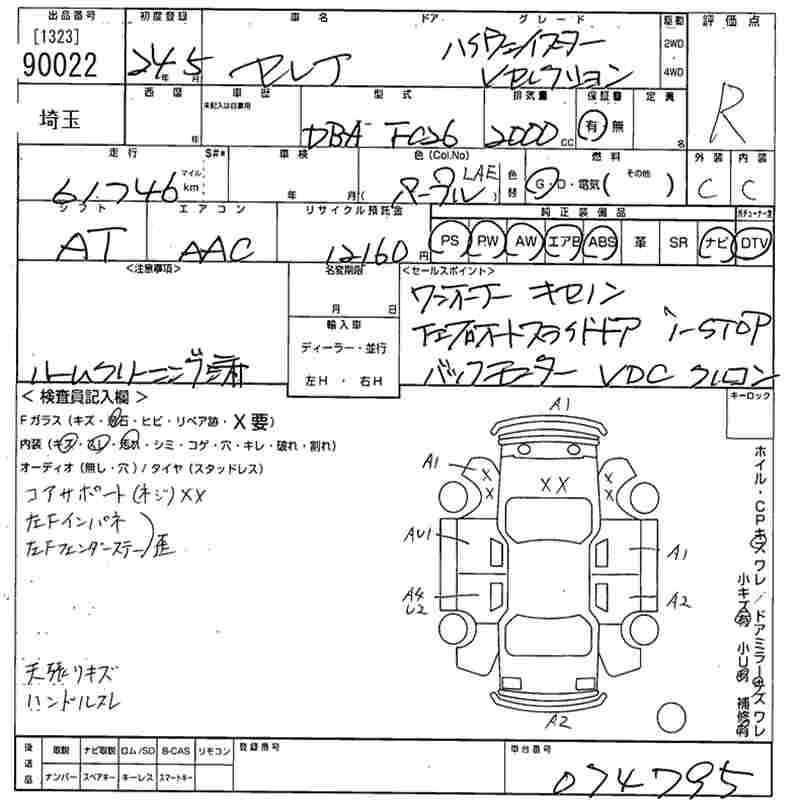 出品番号 初度登録 車名 ドア グレード 駆動 評価点
[1323]
90022 24年5月 セレナ ハイウェイスター Vセレクション 2WD 4WD R
埼玉 西暦 年 車歴 未記入は自家用 型式 DBA FC26 排気量 2000 CC 保証書 有 無 定員 名
走行 $#* 車検 色(Col.No) 色替 燃料 外装 内装
61,746 マイル km 年 月 ( パープル LAE ) G・D・電気( その他 ) C C
シフト エアコン リサイクル預託金 純正装備品 地デジチューナー
AT AAC 12160 円 PS PW AW エアB ABS 革 SR ナビ DTV
<注意事項> 名変期限 <セールスポイント>
月 日 ワンオーナー キセノン
輸入車 両面オートスライドドア i-STOP
ディーラー・並行
ルームクリーニング済 左H ・ 右H バックモニター VDC クルコン
< 検査員記入欄 > キーロック
Fガラス (キズ・飛石・ヒビ・リペア跡・X要)
内装 (キズ・スレ・汚れ・シミ・コゲ・穴・キレ・破れ・割れ)
オーディオ (無し・穴) / タイヤ (スタッドレス)
コアサポート(ネジ)XX
左Fインパネ
左Fフェンダーステー 歪
天張リキズ
ハンドルスレ
A1
A1 X X X X X X
AU1 A1
A4 U2 A2
A2
ホイル・CPキズ ワレ / ドアミラーキズ ワレ
小キズ有 小U有 補修有
後送品 取説 ナビ取説 ロム/SD B-CAS リモコン 登録番号 車台番号
ナンバー スペアキー キーレス スマートキー 074795